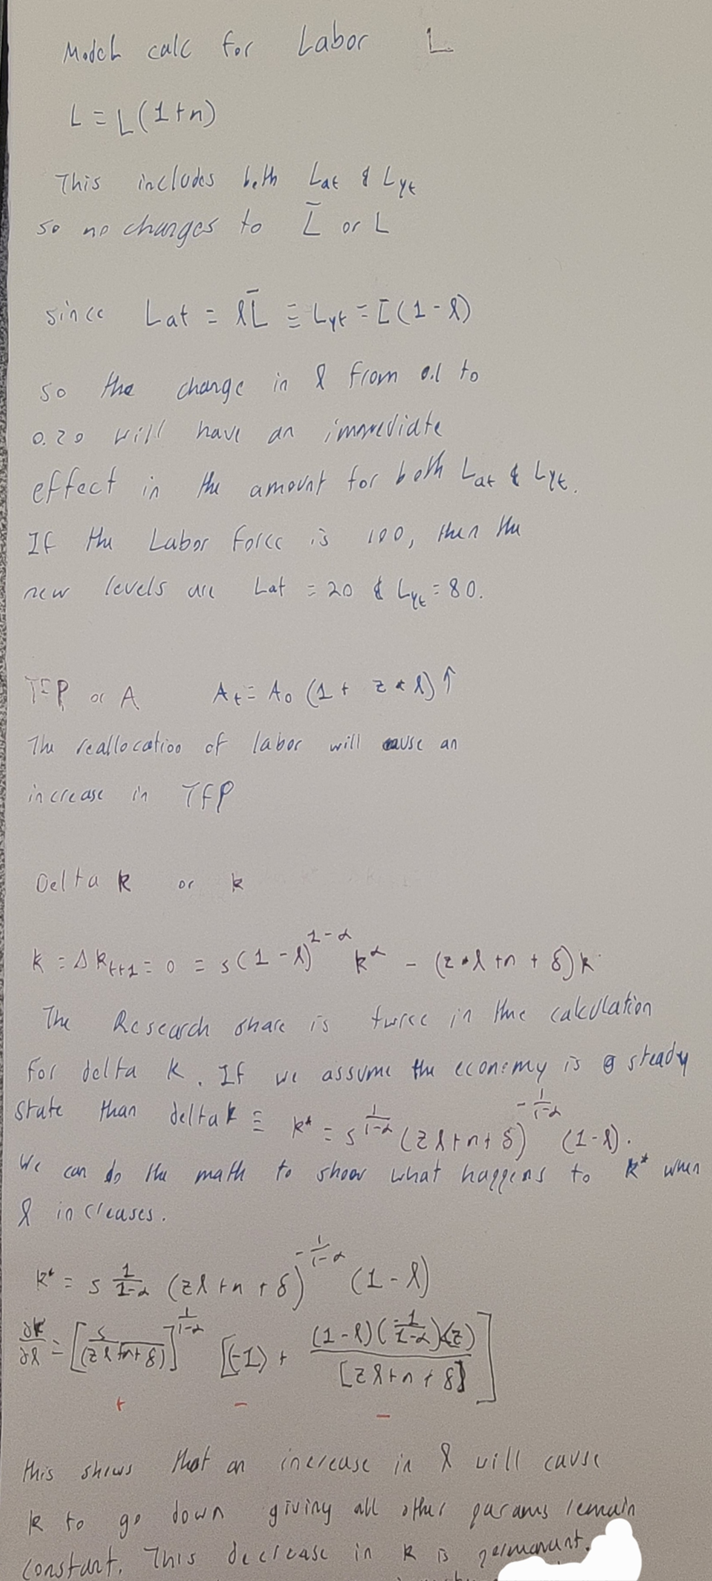 Model calc for Labor L
L = L(1+n)
This includes both Lat & Lyt
so no changes to L̄ or L
since Lat = lL̄ ≡ Lyt = L̄(1-l)
so the change in l from 0.1 to
0.20 will have an immediate
effect in the amount for both Lat & Lyt.
If the Labor Force is 100, then the
new levels are Lat = 20 & Lyt = 80.
TFP or A At = A0 (1 + z * l) ↑
The reallocation of labor will cause an
increase in TFP
Delta k or k
k = Δkt+1 = 0 = s(1-l)^1-α k^α - (z*l+n+δ)k
The Research share is twice in the calculation
for delta k. If we assume the economy is @ steady
state than delta k ≡ k* = s^1/1-α (zl+n+δ)^-1/1-α (1-l).
We can do the math to show what happens to k* when
l increases.
k* = s 1/1-α (zl+n+δ)^-1/1-α (1-l)
∂k/∂l = [s/(zl+n+δ)]^1/1-α [(-1) + (1-l)(-1/1-α)(z)/[zl+n+δ]]
+ - -
this shows that an increase in l will cause
k to go down giving all other params remain
constant. This decrease in k is permanant.